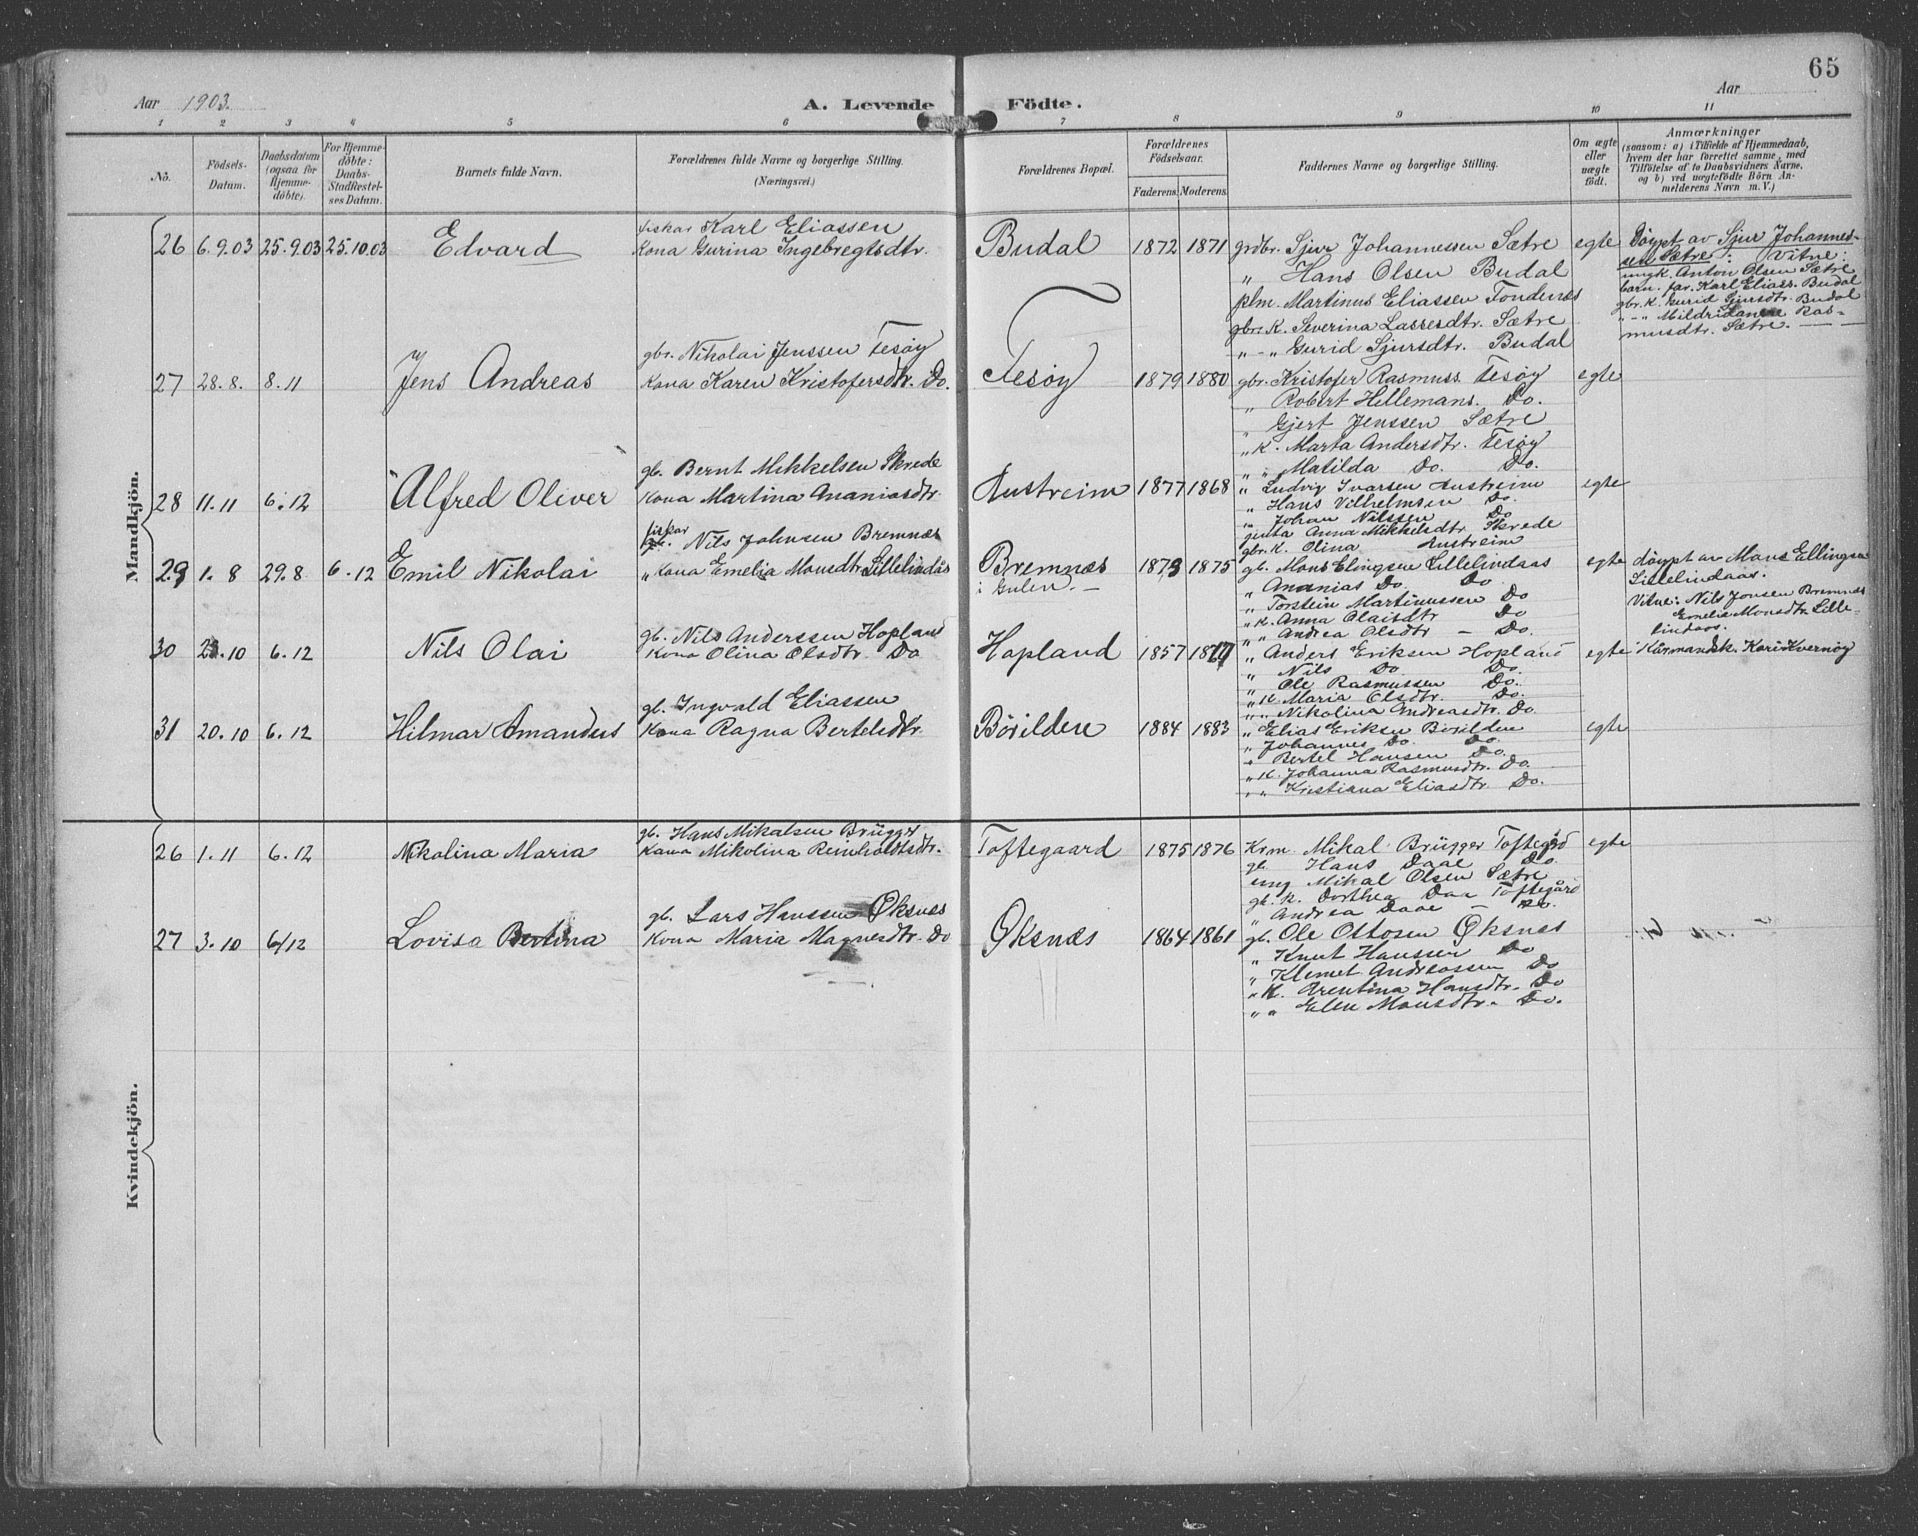 65
Aar 1903. A. Levende Födte. Aar
1 2 3 4 5 6 7 8 9 10 11
No. Födsels-Datum. Daabsdatum (ogsaa for Hjemme-döbte). For Hjemme-döbte: Daabs-Stadfæstel-ses Datum. Barnets fulde Navn. Forældrenes fulde Navne og borgerlige Stilling. (Næringsvei.) Forældrenes Bopæl. Forældrenes Födselsaar. Faderens. Moderens. Faddernes Navne og borgerlige Stilling. Om ægte eller uægte födt. Anmærkninger (saasom: a) i Tilfælde af Hjemmedaab, hvem der har forrettet samme, med Tilföielse af to Daabsvidners Navne, og b) ved uægtefödte Börn An-melderens Navn m. V.)
Mandkjön.
26 6.9.03 25.9.03 25.10.03 Edvard
fiskar Karl Eliassen
Kona Gurina Ingebregtsdtr.
Budal 1872 1871
grdbr. Sjur Johannessen Sætre
„ Hans Olsen Budal
plm. Martinus Eliassen Tondenes
gbr. K. Severina Lassesdtr. Sætre
„ - „ Gurid Sjursdtr. Budal
egte
Döypt av Sjur Johannes-
sen Sætre: Vitne:
ungk. Anton Olsen Sætre
barn. far. Karl Eliass. Budal
gbr. K. Gurid Sjursdtr. Budal
„ - „ Mildridanene Ras-
musdtr. Sætre.
27 28.8. 8.11 Jens Andreas
gbr. Nikolai Jenssen Tesöy
Kona Karen Kristofersdtr. Do.
Tesöy 1879 1880
gbr. Kristofer Rasmuss. Tesöy
„ Robert Hillemans. Do.
„ Gjert Jenssen Sætre
„ K. Marta Andersdtr. Tesöy
„ „ Matilda Do. Do.
egte
28 11.11 6.12 Alfred Oliver
gb. Bernt Mikkelsen Skrede
Kona Martina Ananiasdtr.
Austreim 1877 1868
„ Ludvig Ivarsen Austreim
„ Hans Vilhelmsen Do.
„ Johan Nilssen Do
jenta Anna Mikkelsdtr Skrede
gbr. K. Olina Austreim
egte
29 1.8 29.8 6.12 Emil Nikolai
fiskar
Nils Johnsen Bremnæs
„ Kona Emelia Monsdtr Lillelindås
Bremnæs
i Gulen.
1873 1875
gb. Mons Elingsen Lillelindaas
„ Ananias Do Do
„ Torstein Martinussen Do
„ K. Anna Olaisdtr Do
„ „ Andrea Olsdtr - Do.
egte
döypt av Mons Ellingsen
Lillelindaas.
Vitne: Nils Jonsen Bremnes
Emelia Monsdtr. Lille-
lindaas.
30 23.10 6.12 Nils Olai
gb. Nils Anderssen Hopland
Kona Olina Olsdtr. Do
Hopland 1857
„ Anders Eriksen Hopland
„ Nils Do Do.
„ Ole Rasmussen Do.
„ K. Maria Olsdtr. Do.
„ „ Nikolina Andreasdtr. Do
egte
Kårmandsk. Kari Kvernöy
31 20.10 6.12 Hilmar Amandus
gb. Ingvald Eliassen
Kona Ragna Bertelsdtr.
Börilden 1884 1883
„ Elias Eriksen Börilden
„ Johannes Do. Do.
„ Bertel Hansen Do.
„ K. Johanna Rasmusdtr. Do.
„ „ Kristiana Eliasdtr. Do.
egte
Kvindekjön.
26 1.11 6.12 Nikolina Maria
gb. Hans Mikalsen Brügger
Kona Mikolina Reinholdtsdtr.
Toftegaard 1875 1876
Krm. Mikal Brügger Toftegrd
gb. Hans Daae Do.
ung Mikal Olsen Sætre
gb. K. Dorthea Daa Toftegård
„ Andrea Daae - Do.
egte
27 3.10 6/12 Lovisa Bertina
gb. Lars Hanssen Öksnæs
Kona Maria Magnesdtr. Do
Öksnæs 1864 1861
gb. Ole Ottosen Öksnæs
„ Knut Hanssen Do
„ Klemet Andreassen Do
„ K. Arentina Hansdtr. Do
„ „ Elen Monsdtr. Do.